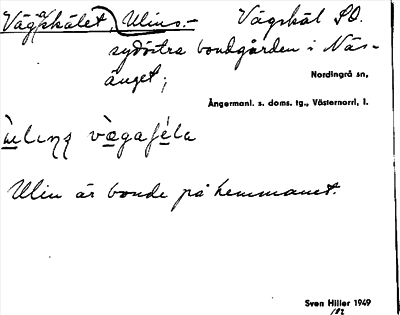 Vågaskålet, Ulins.- Vågskål SO.
sydöstra bondgården i Näs-
änget;
Nordingrå sn,
Ångermanl. s. doms. tg., Västernorrl, l.
Ulin är bonde på hemmanet.
Sven Hiller 1949